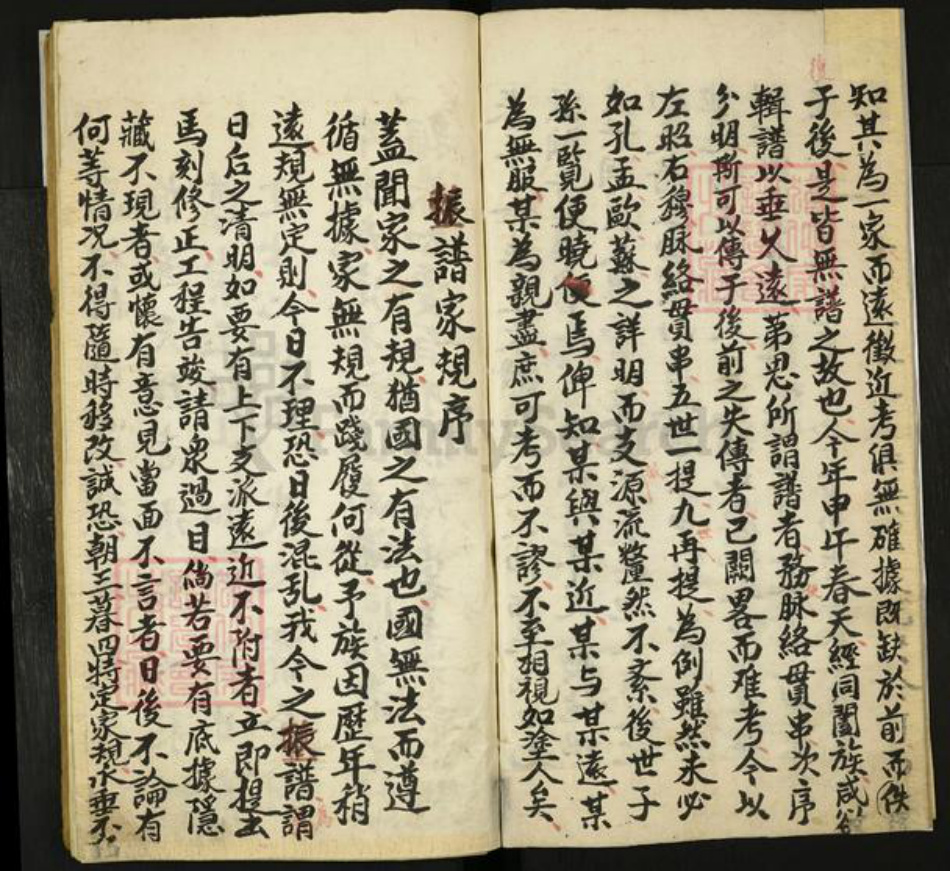 知其為一家而遠徵近考俱無確據既缺於前而佚
復
子後是皆無譜之故也今年甲午春天經同闔族咸僉
輯譜以垂久遠第思所謂譜者務脉絡貫串次序
分明斯可以傳于後前之失傳者已闕畧而难考今以
左昭右穆脉絡貫串五世一提九再提為例雖然未必
如孔孟歐蘇之詳明而支源流釐然不紊後世子
孫一覽便曉便焉俾知某與某近某与某遠某
為無服某為親盡庶可考而不謬不至相視如塗人矣
振譜家規序
蓋聞家之有規猶國之有法也國無法而遵
循無據家無規而踐履何從予族因歷年稍
遠規無定則今日不理恐日後混乱我今之振譜謂
日后之清明如要有上下支派遠近不附者立即提出
馬刻修正工程告竣請衆過目倘若要有底據隱
藏不現者或懷有意見當面不言者日後不論有
何等情况不得隨時移改誠恐朝三暮四特定家規永垂不
FamilySearch